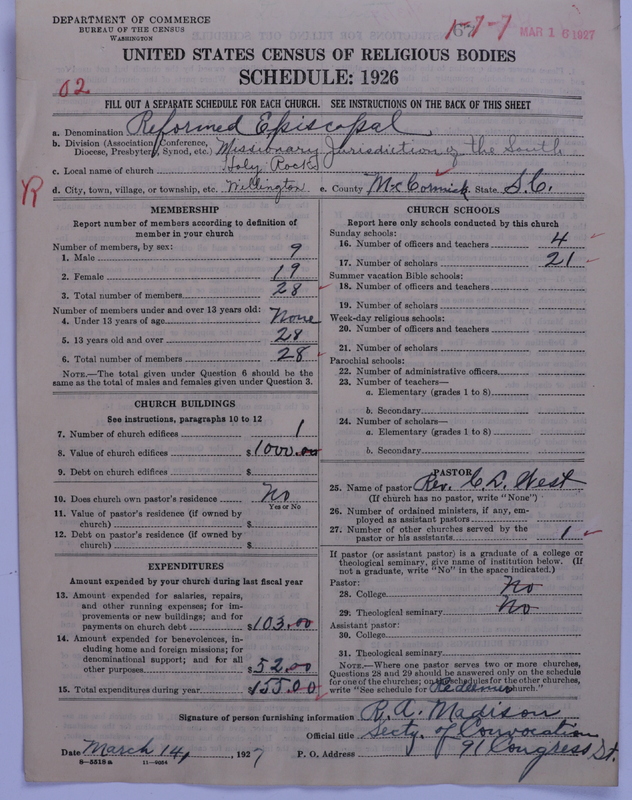 DEPARTMENT OF COMMERCE
BUREAU OF THE CENSUS
WASHINGTON
1-7-7
MAR 16 1927
UNITED STATES CENSUS OF RELIGIOUS BODIES
SCHEDULE: 1926
02
FILL OUT A SEPARATE SCHEDULE FOR EACH CHURCH. SEE INSTRUCTIONS ON THE BACK OF THIS SHEET
a. Denomination Reformed Episcopal
b. Division (Association, Conference, Diocese, Presbytery, Synod, etc.) Missionary Jurisdiction of the South
c. Local name of church Holy Rock
R
d. City, town, village, or township, etc. Willington e. County McCormick State S.C.
MEMBERSHIP
Report number of members according to definition of member in your church
Number of members, by sex:
1. Male 9
2. Female 19
3. Total number of members 28
Number of members under and over 13 years old:
4. Under 13 years of age None
5. 13 years old and over 28
6. Total number of members 28
NOTE.—The total given under Question 6 should be the same as the total of males and females given under Question 3.
CHURCH BUILDINGS
See instructions, paragraphs 10 to 12
7. Number of church edifices 1
8. Value of church edifices $1000.00
9. Debt on church edifices $
10. Does church own pastor's residence No
Yes or No
11. Value of pastor's residence (if owned by church) $
12. Debt on pastor's residence (if owned by church) $
EXPENDITURES
Amount expended by your church during last fiscal year
13. Amount expended for salaries, repairs, and other running expenses; for improvements or new buildings; and for payments on church debt $103.00
14. Amount expended for benevolences, including home and foreign missions; for denominational support; and for all other purposes $52.00
15. Total expenditures during year $155.00
CHURCH SCHOOLS
Report here only schools conducted by this church
Sunday schools:
16. Number of officers and teachers 4
17. Number of scholars 21
Summer vacation Bible schools:
18. Number of officers and teachers
19. Number of scholars
Week-day religious schools:
20. Number of officers and teachers
21. Number of scholars
Parochial schools:
22. Number of administrative officers
23. Number of teachers—
a. Elementary (grades 1 to 8)
b. Secondary
24. Number of scholars—
a. Elementary (grades 1 to 8)
b. Secondary
PASTOR
25. Name of pastor Rev. C. D. West
(If church has no pastor, write "None")
26. Number of ordained ministers, if any, employed as assistant pastors
27. Number of other churches served by the pastor or his assistants 1
If pastor (or assistant pastor) is a graduate of a college or theological seminary, give name of institution below. (If not a graduate, write "No" in the space indicated.)
Pastor:
28. College No
29. Theological seminary No
Assistant pastor:
30. College
31. Theological seminary
NOTE.—Where one pastor serves two or more churches, Questions 28 and 29 should be answered only on the schedule for one of the churches; on the schedules for the other churches, write "See schedule for Redeemer church."
Signature of person furnishing information R. A. Madison
Official title Secty. of Convocation
Date March 14, 1927 P. O. Address 91 Congress St.
8-5518a 11-9084